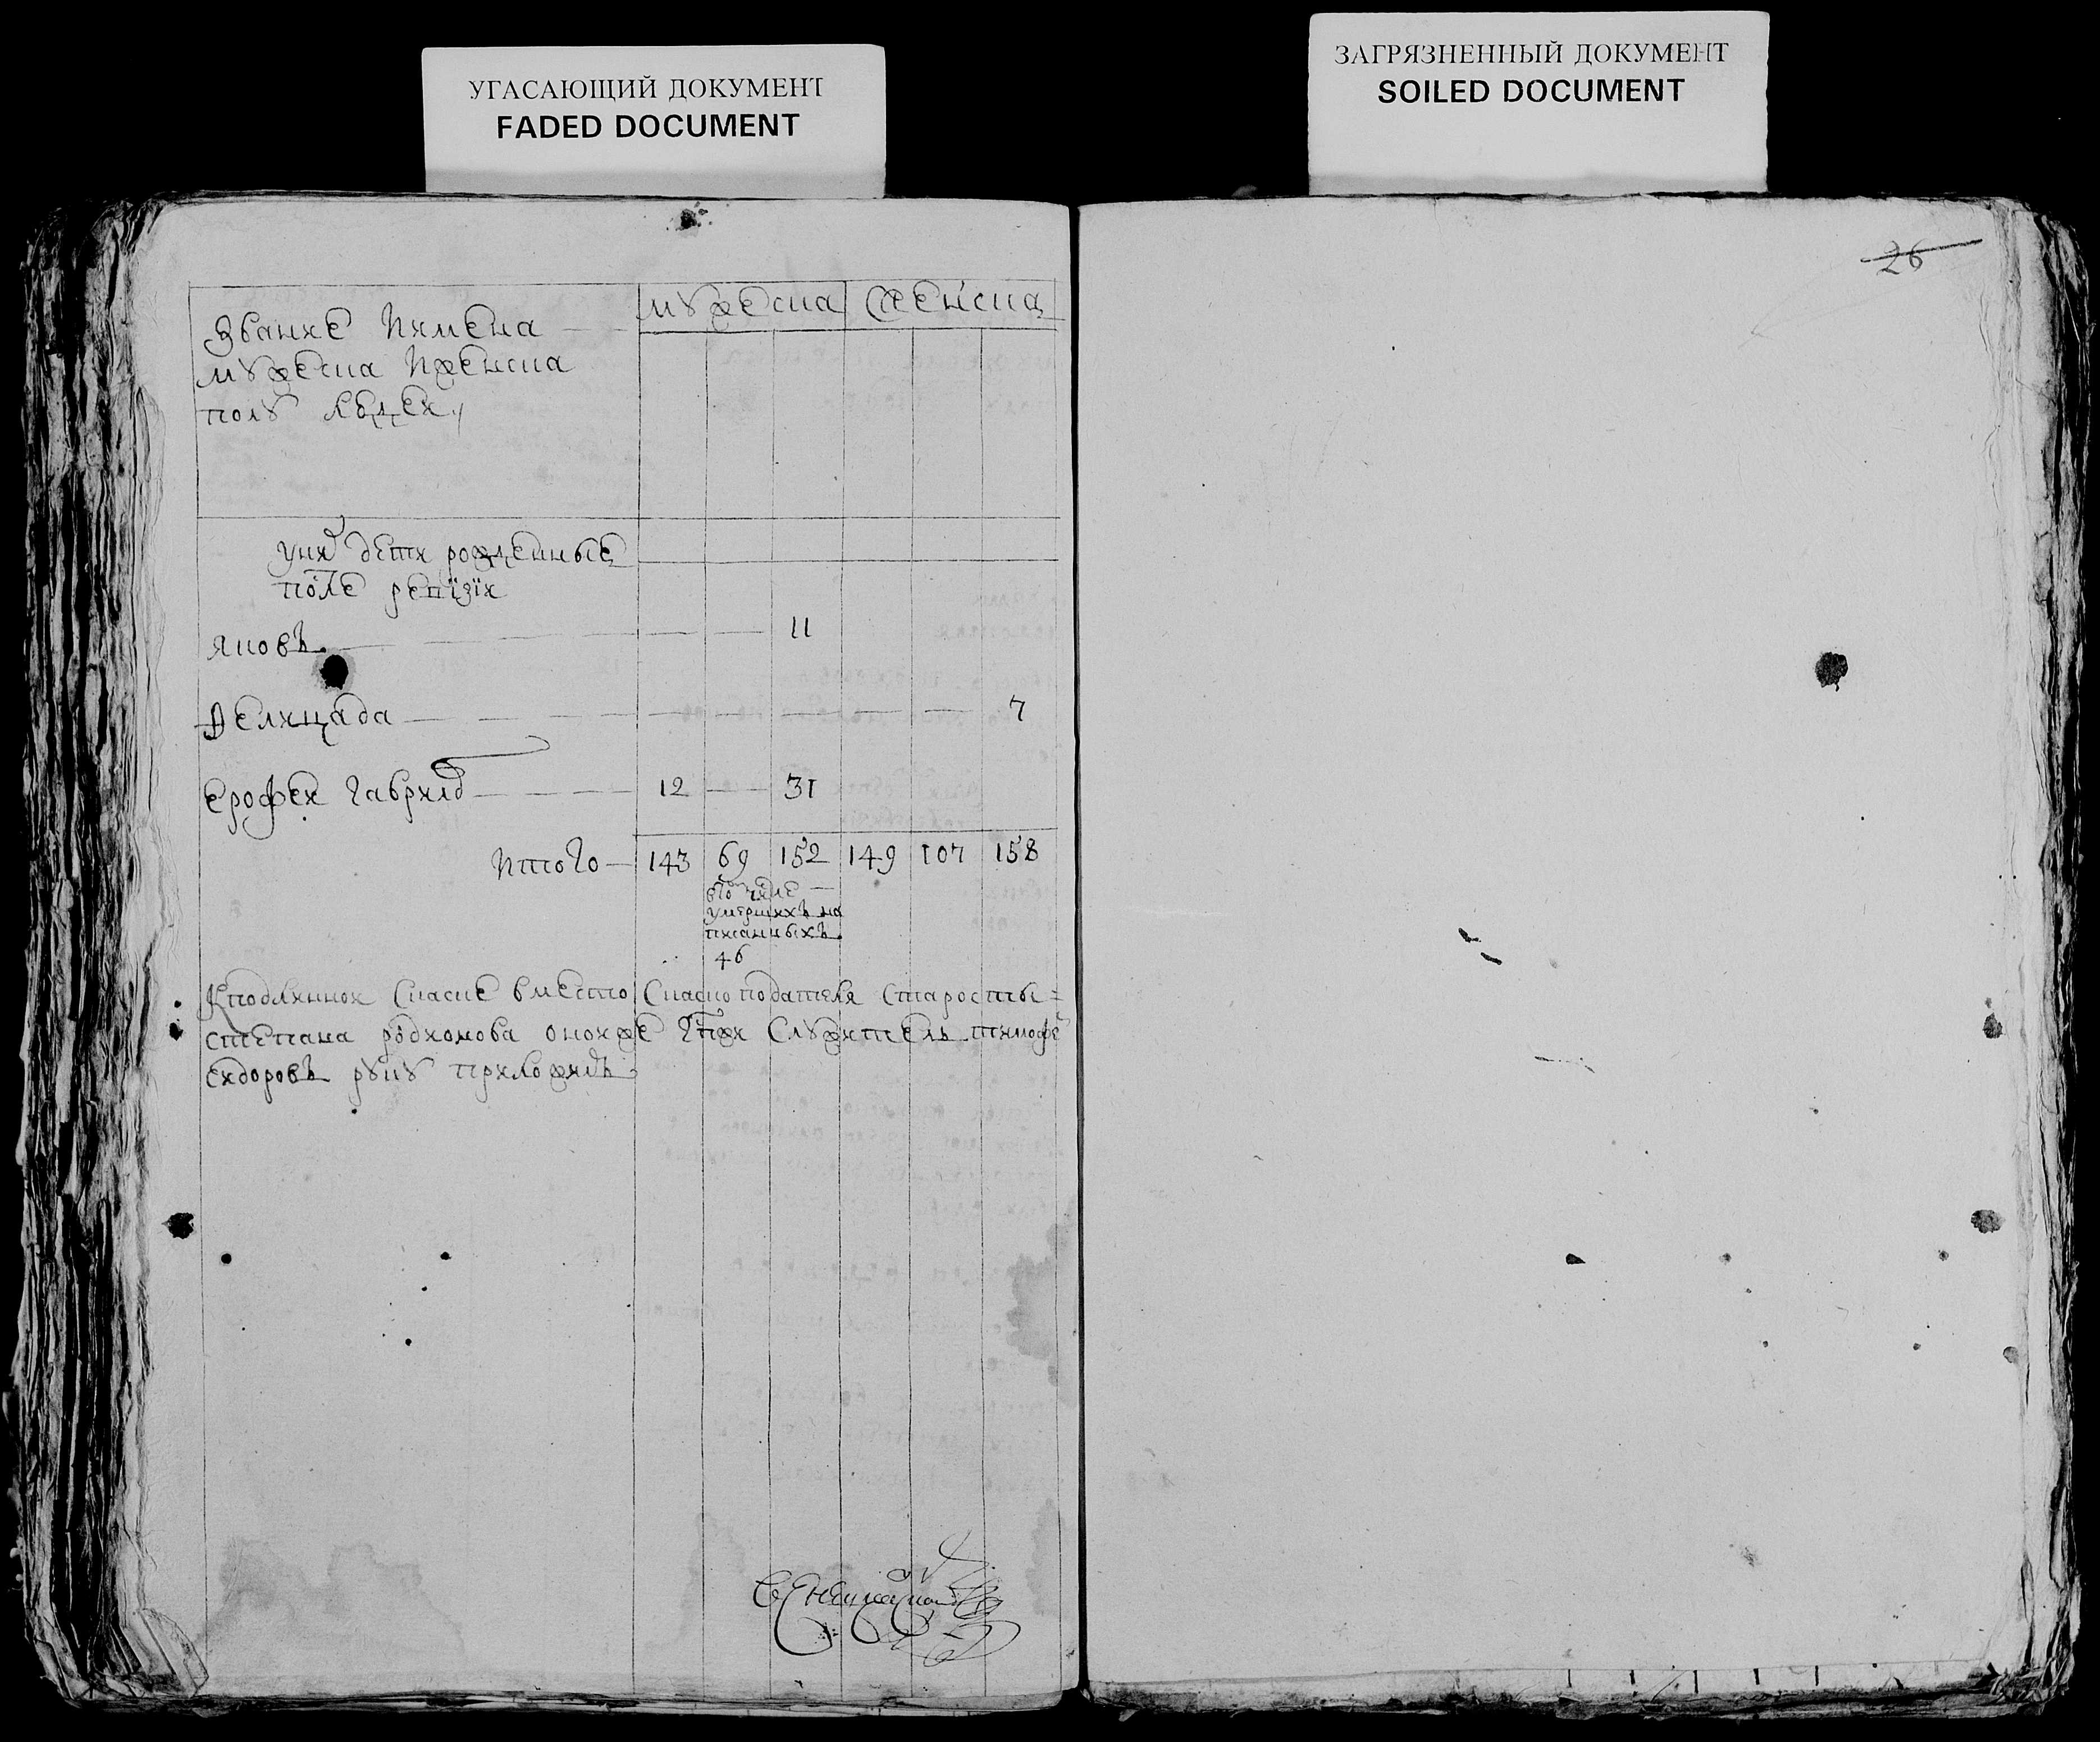 УГАСАЮЩИЙ ДОКУМЕНТ
FADED DOCUMENT
ЗАГРЯЗНЕННЫЙ ДОКУМЕНТ
SOILED DOCUMENT
26
Звание имена
мужеска иженска
полу людеи
мужеска женска
уних дети рожденные
после ревїзїи
яковъ 11
Фелицада 7
ерофеи гаврил 12 31
итого 143 69 152 149 107 158
втом числе
умершихъ на
писанныхъ
46
Кподлиннои скаске вместо скаско подателя старосты
степана родионова оной же гпжи служитель тимофеи
сидоровъ руку приложилъ